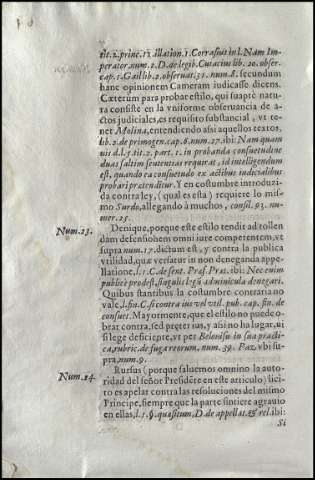 tit. 2. princ. 11. illation. 1. Corrasius in l. Nam Im-
perator, num. 2. D. de legib. Cutacius lib. 20. obser.
cap. 1. Gail lib. 2. obseruat. 31. num. 8. secundum
hanc opinionem Cameram iudicasse dicens.
Cæterum para probar estilo, que suapte natu
ra consiste en la vniforme obseruancia de
actos judiciales, es requisito substancial, vt te-
net Molina, entendiendo assi aquellos textos,
lib. 2. de primogen. cap. 6. num. 27. ibi: Nam quam
uis d. l. 3. tit. 2. part. 1. in probanda consuetudine
duas saltim sententias requirat, id intelligendum
est, quando ea consuetudo ex actibus iudicialibus
probari prætenditur. Y en costumbre introduzi
da contra ley, (qual es esta) requiere lo mis-
mo Surdo, allegando à muchos, consil. 93. nu-
mer. 25.
Num. 13.
Denique, porque este estilo tendit ad tollen
dam defensionem omni iure competentem, vt
supra num. 17. dictum est, y contra la publica
vtilidad, quæ versatur in non deneganda appe-
llatione, l. 1. C. de sent. Præf. Præt. ibi: Nec enim
publicè prodest, singulis legũ adminicula denegari.
Quibus stantibus la costumbre contraria no
vale, l. fin. C. si contra ius vel vtil. pub. cap. fin. de
consuet. Mayormente, que el estilo no puede o-
brar contra, sed præter ius, y assi no ha lugar, ui
si lege deficiente, vt per Belonisu in sua practi
ca, rubric. de fuga reorum. num. 39. Paz. vbi su-
pra, num. 9.
Num. 14.
Rursus (porque saluemos omnino la auto-
ridad del señor Presidẽte en este articulo) lici-
to es apelar contra las resoluciones del mismo
Principe, siempre que la parte sintiere agrauio
en ellas, l. 1. §. quæsitum, D. de appellat. & rel. ibi:
Si